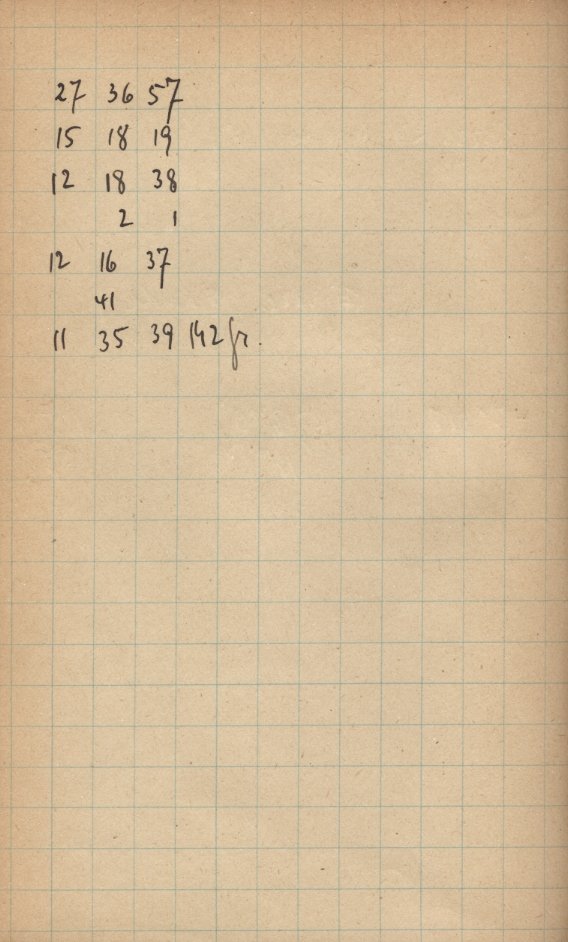 27 36 57
15 18 19
12 18 38
2 1
12 16 37
41
11 35 39 142 fr.